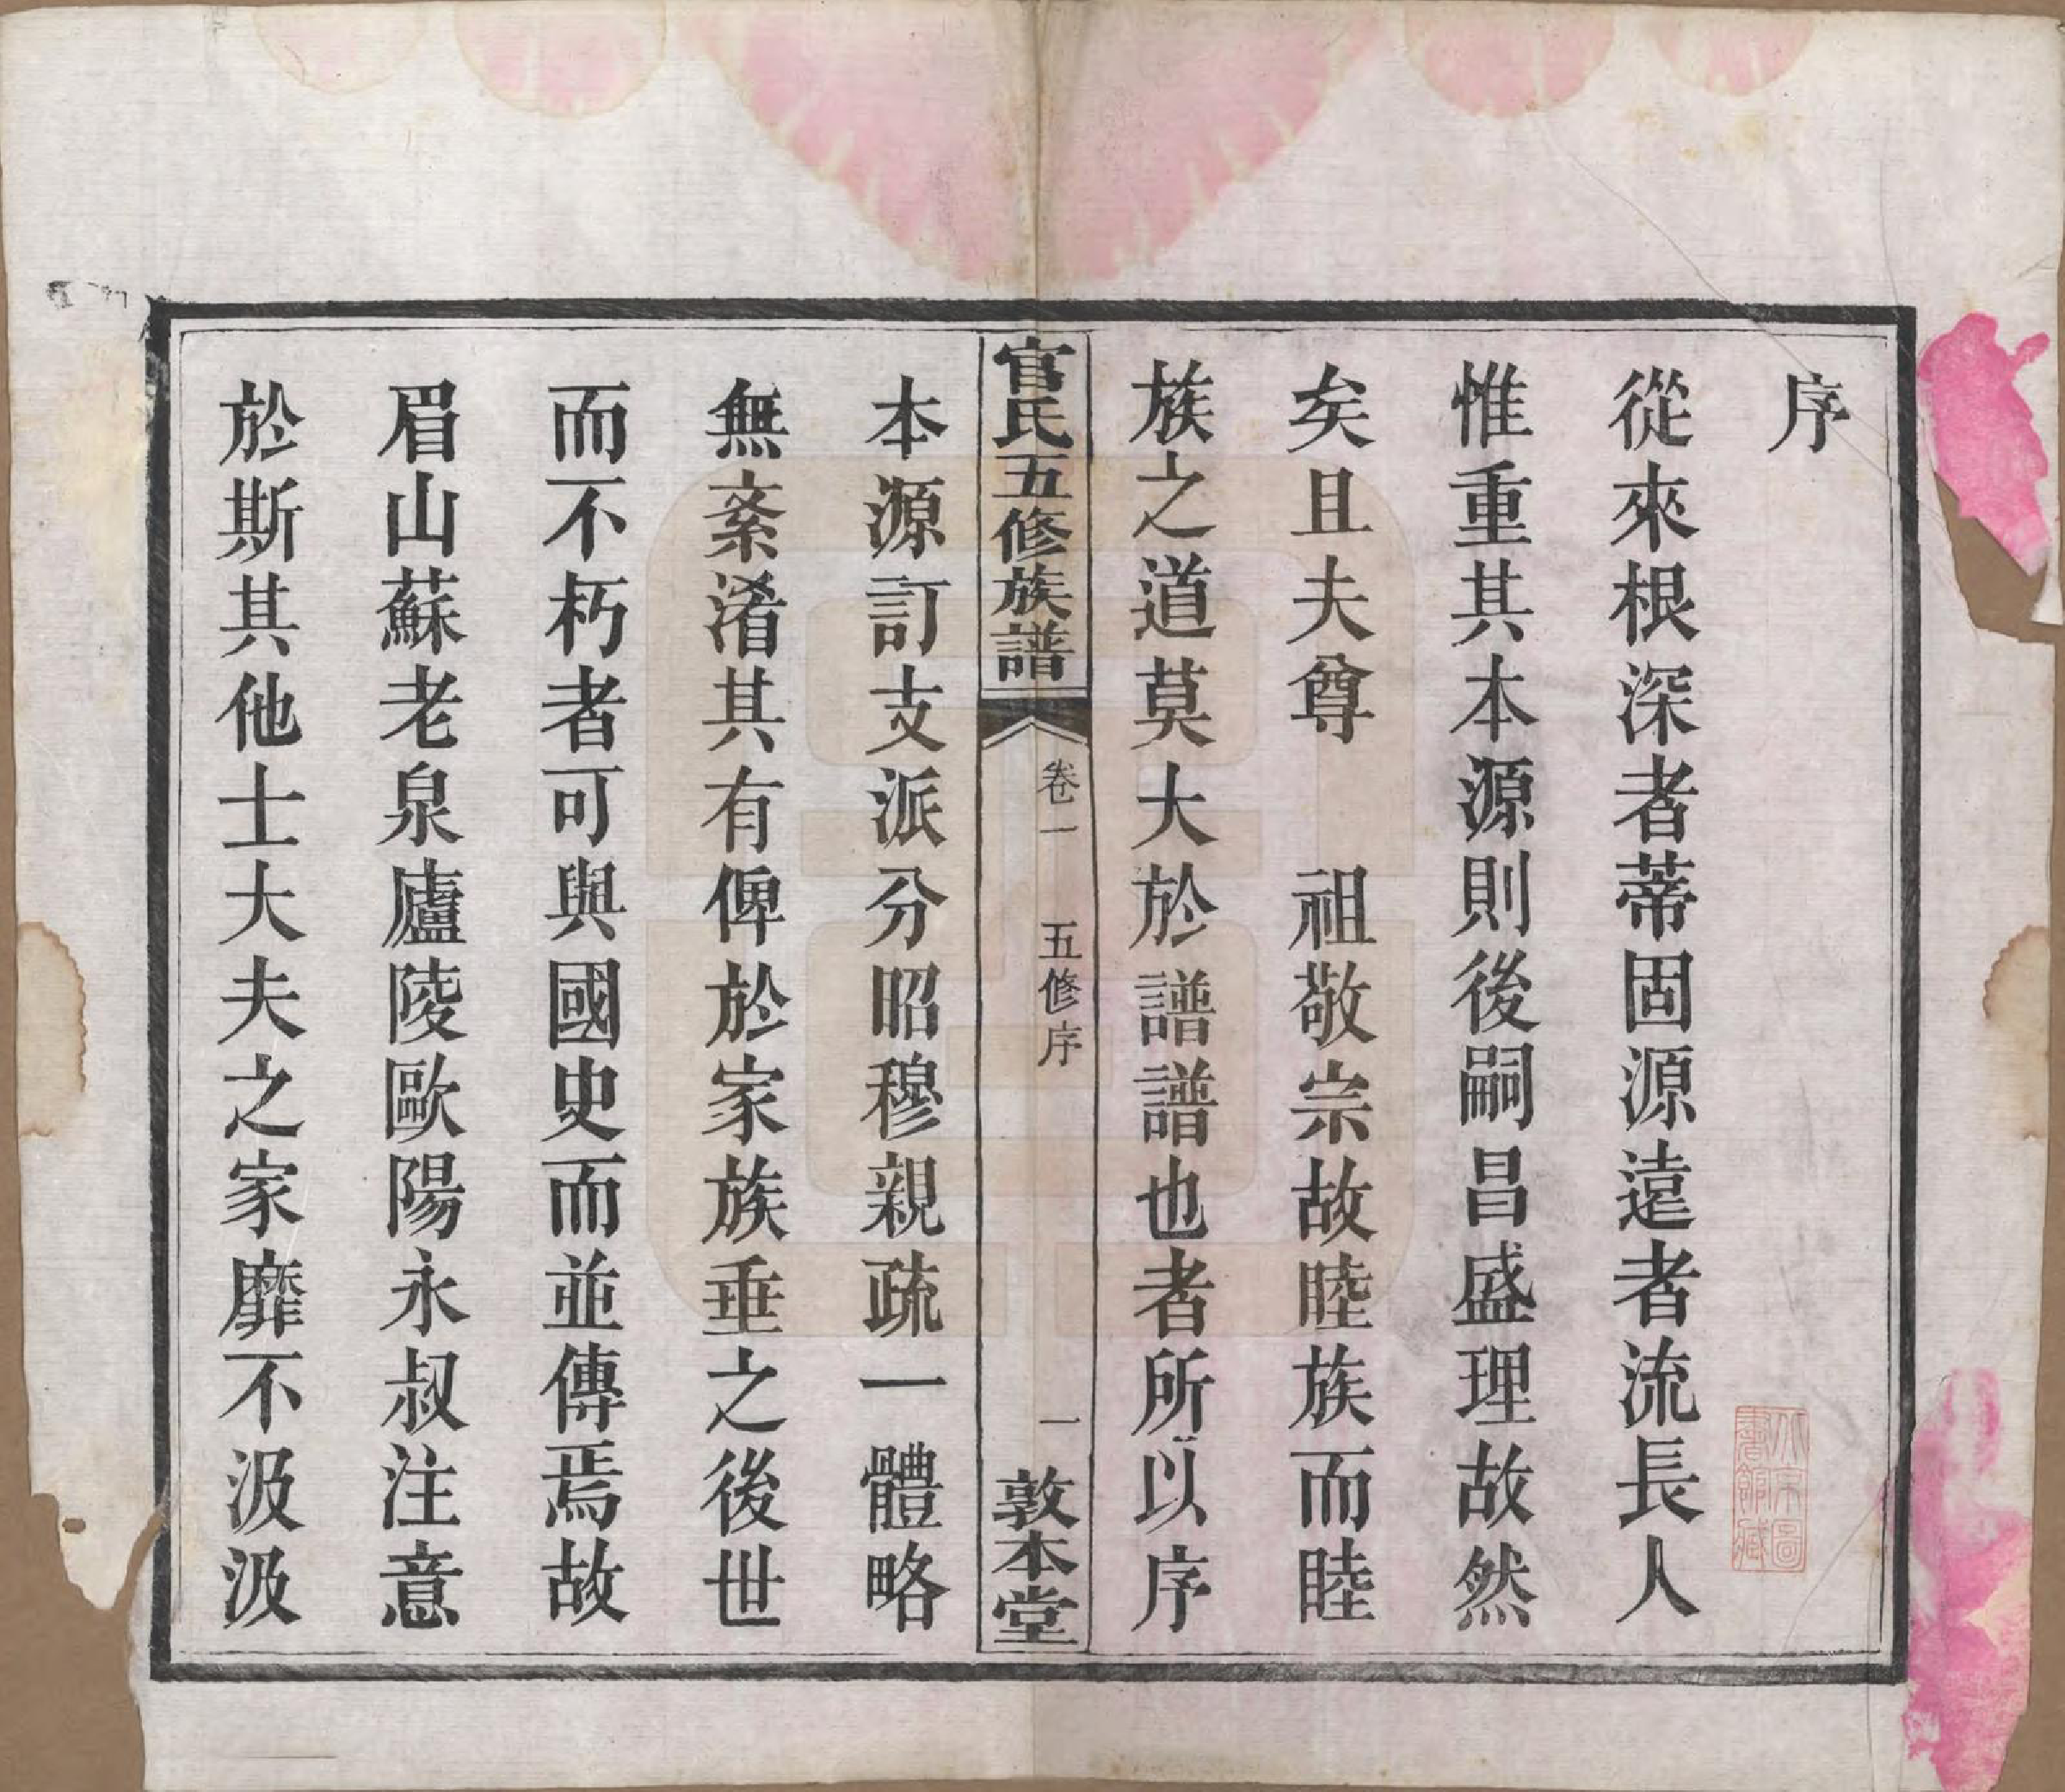 序
從來根深者蒂固源遠者流長人
惟重其本源則後嗣昌盛理故然
矣且夫尊　祖敬宗故睦族而睦
族之道莫大於譜譜也者所以序
官氏五修族譜
卷一
五修序
一
敦本堂
本源訂支派分昭穆親疏一體略
無紊淆其有俾於家族垂之後世
而不朽者可與國史而並傳焉故
眉山蘇老泉廬陵歐陽永叔注意
於斯其他士大夫之家靡不汲汲
北京圖
書館藏